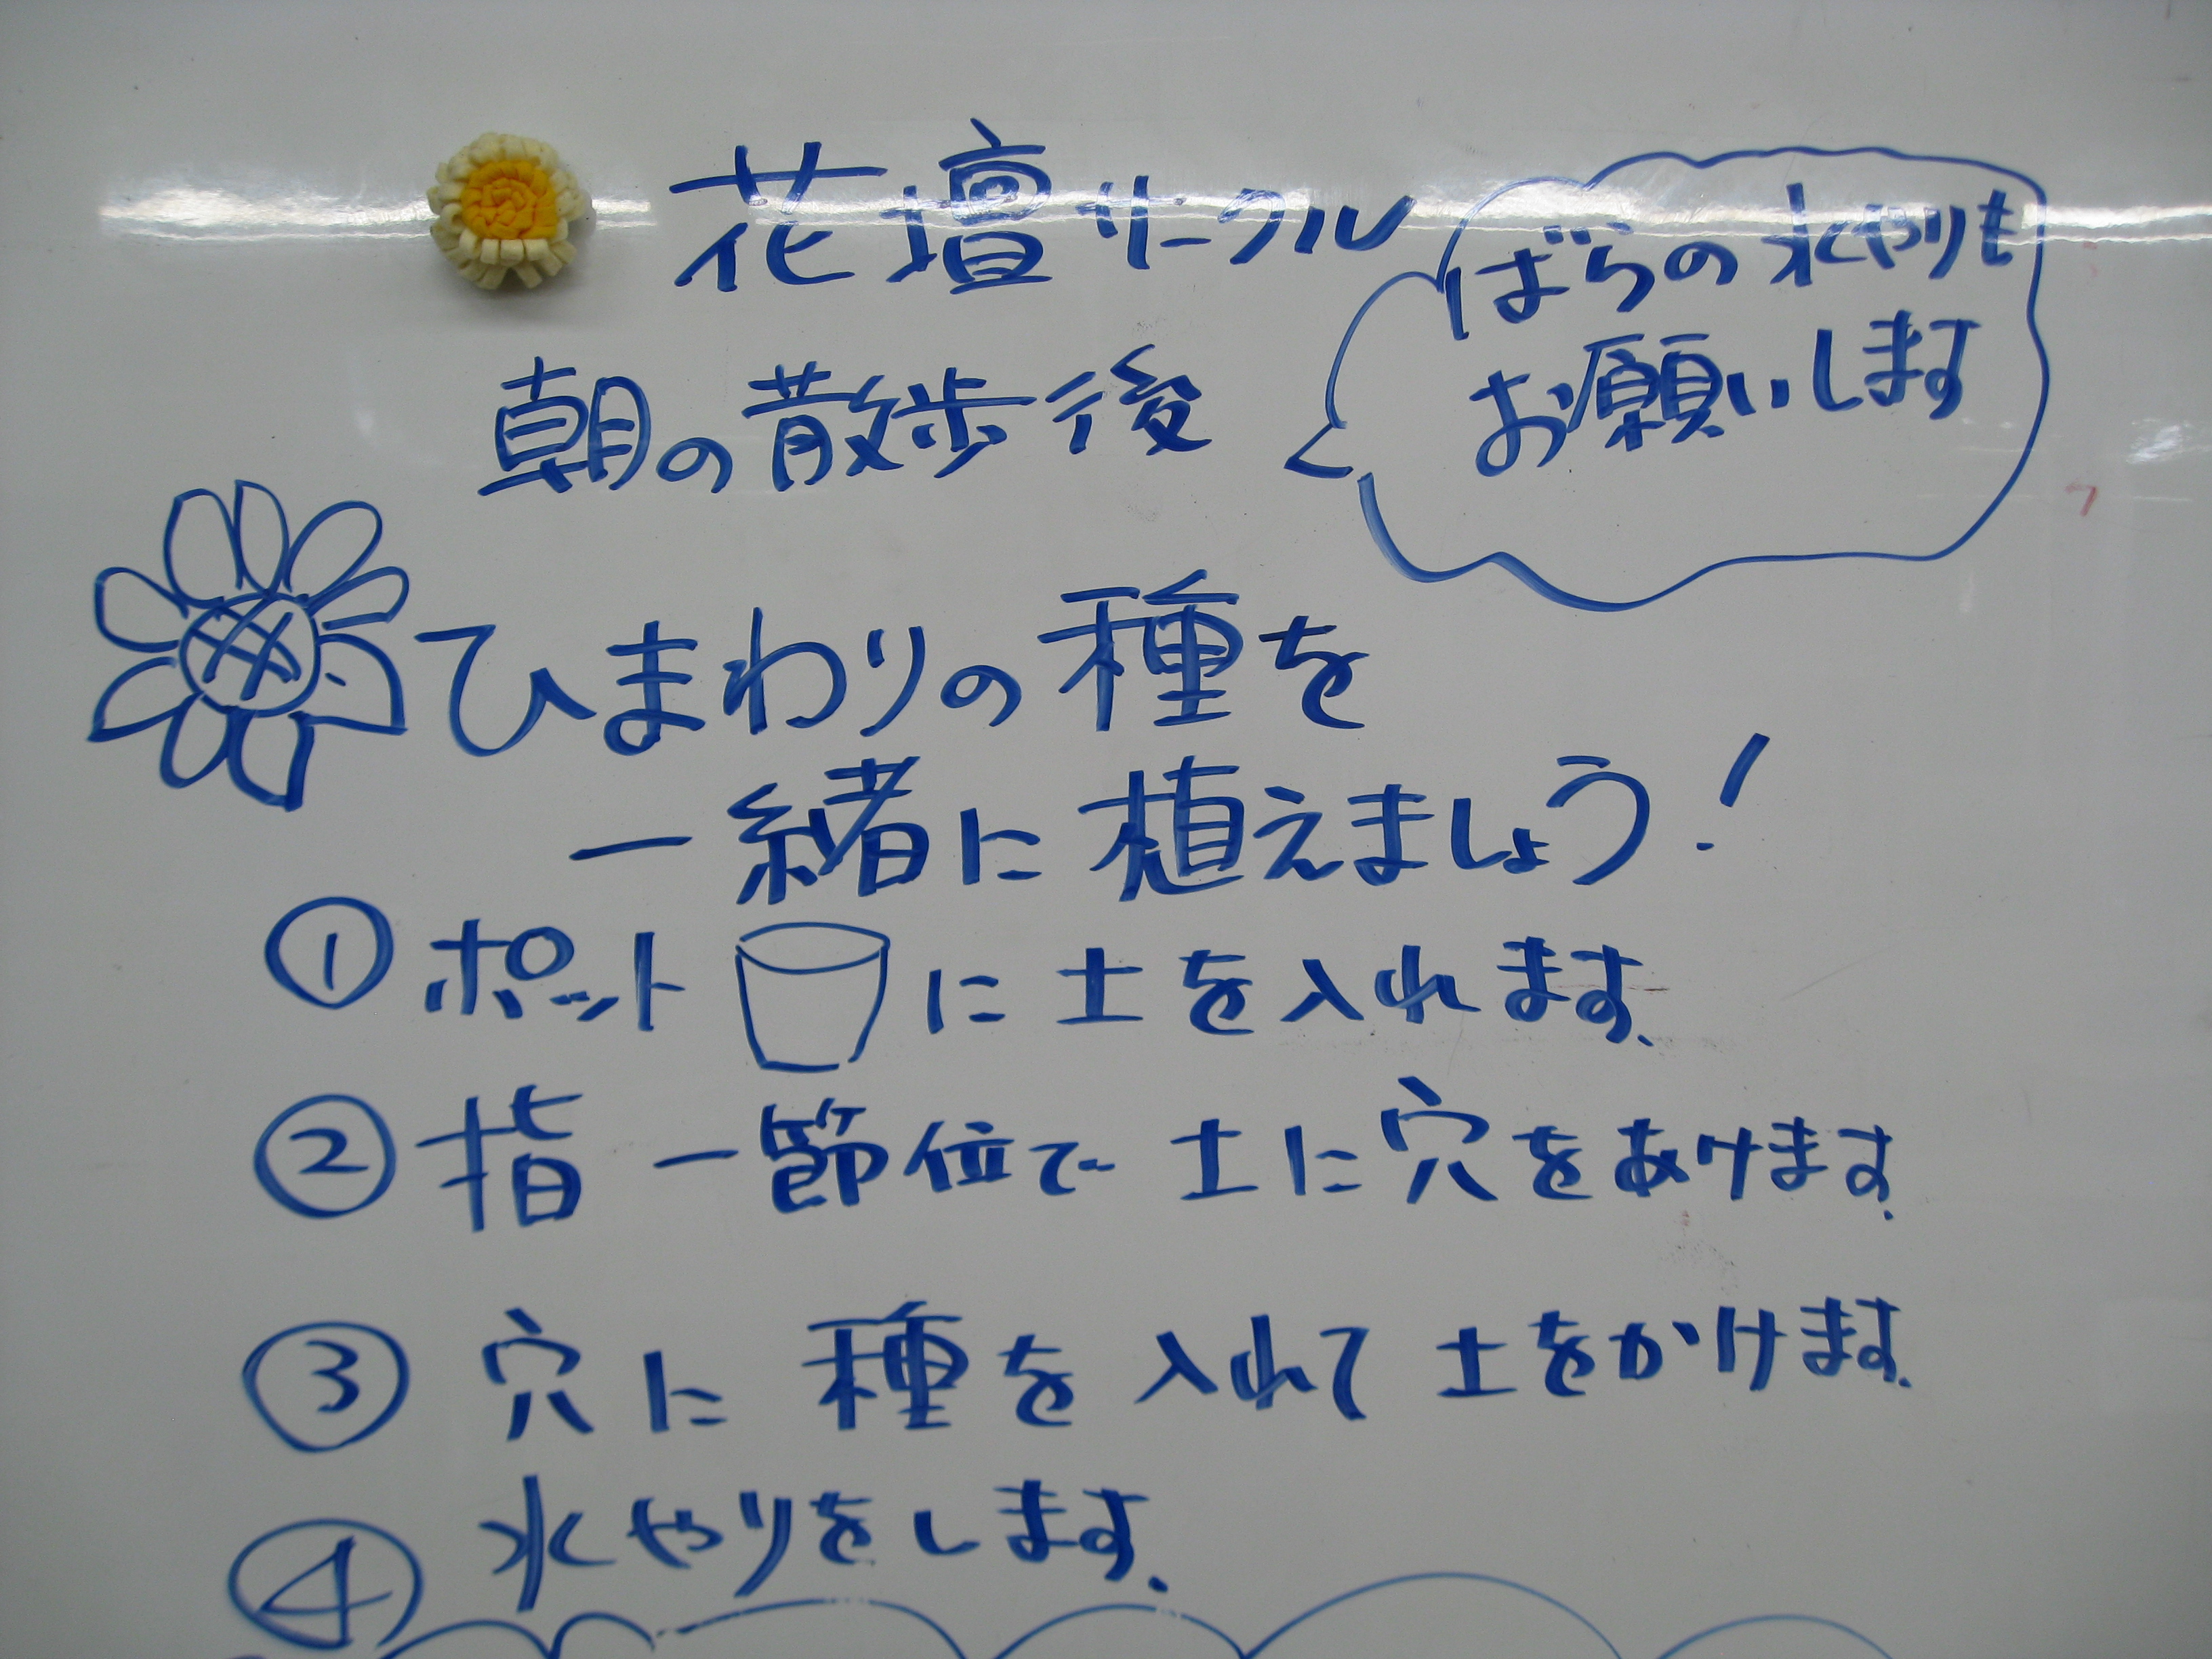 花壇サークル
ばらの水やりも
お願いします
朝の散歩後
ひまわりの種を
一緒に植えましょう!
① ポットに土を入れます.
② 指一節位で土に穴をあけます.
③ 穴に種を入れて土をかけます.
④ 水やりをします.